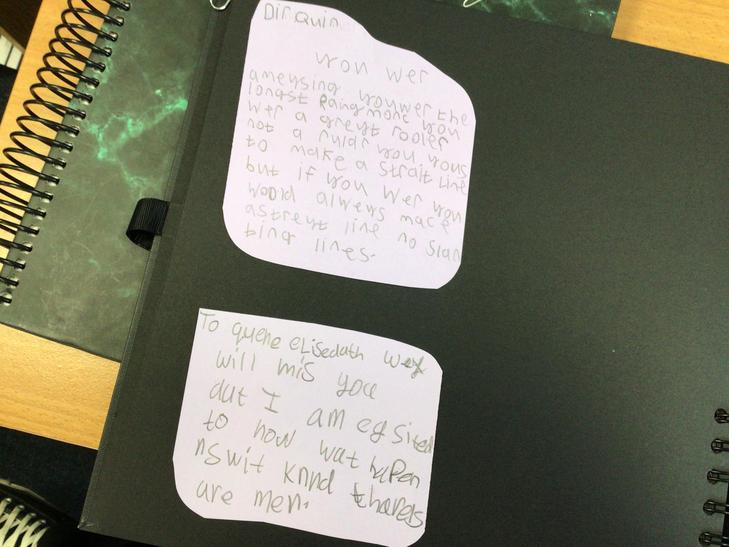 Dir quin
you wer
ameysing you wer the
longst Raing monc you
wer a greyt rooler
not a ruldr you yous
to make a strait line
but if you wer you
woold alweys mace
astreyt line no slan
bing lines.
To quene elisedath wey
will mis you
dut I am egsited
to now wat hapen
nswit knnd thareds
are men.